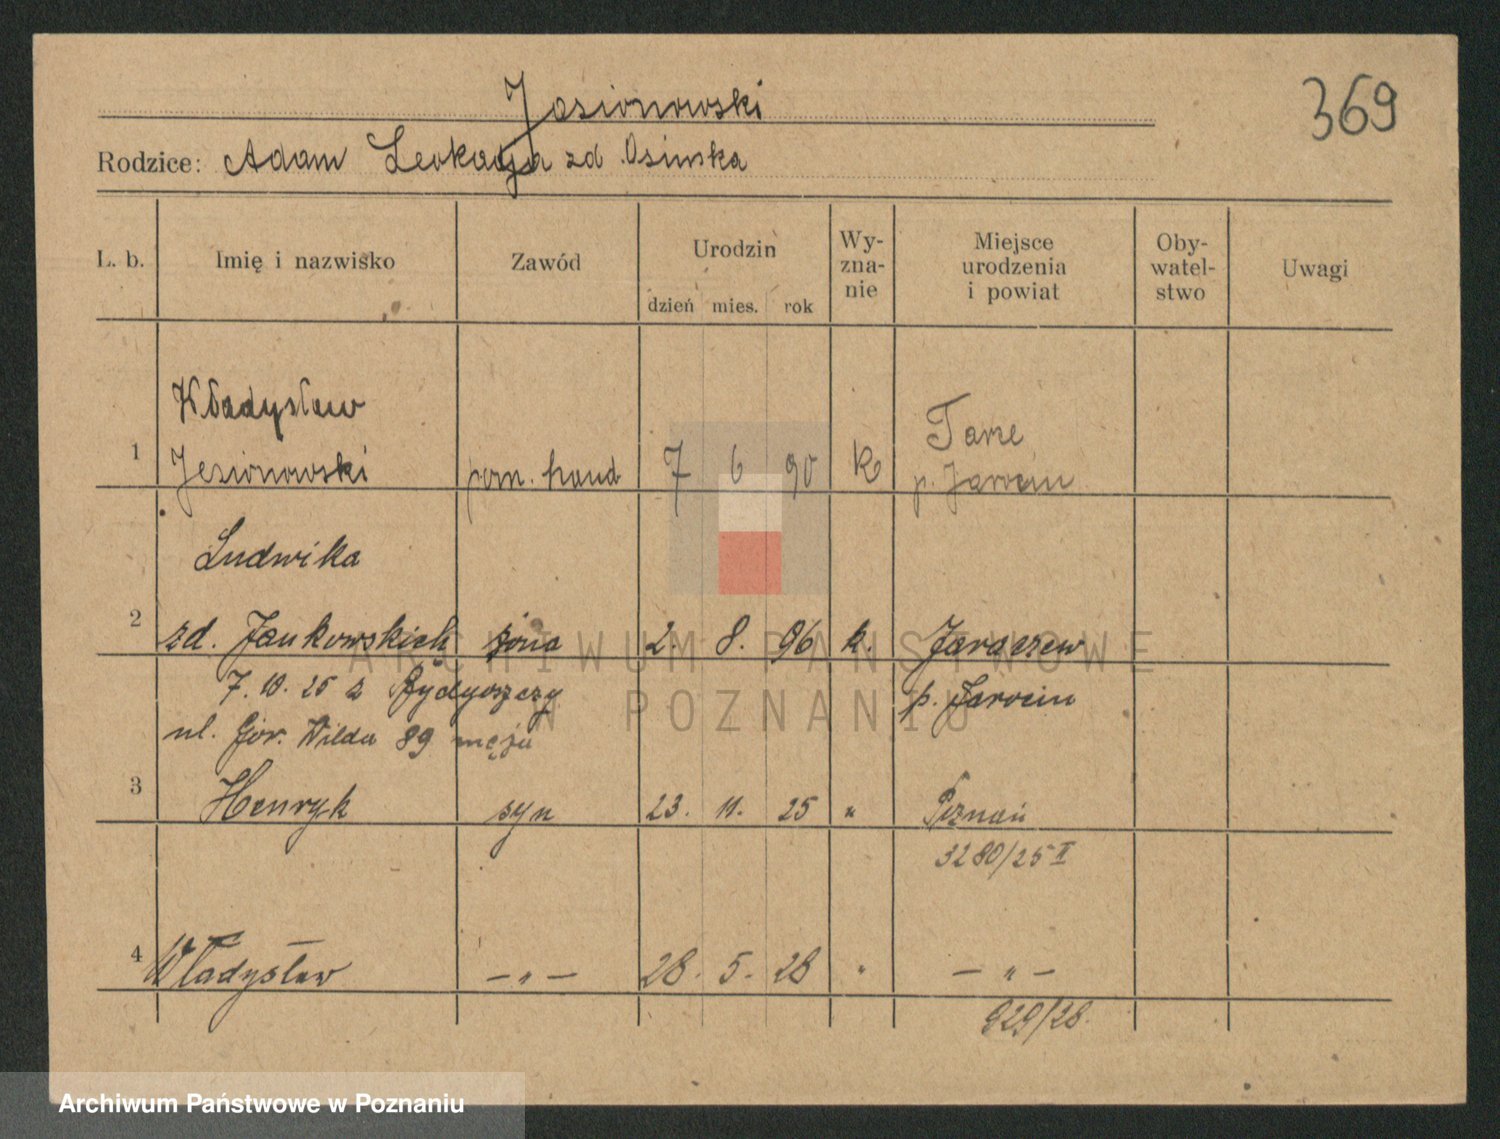 369
Jasionowski
Rodzice: Adam Leokadja zd. Osinska
L. b. Imię i nazwisko Zawód Urodzin dzień mies. rok Wy-zna-nie Miejsce urodzenia i powiat Oby-watel-stwo Uwagi
Władysław
1 Jesionowski pom. hand 7 6 90 k Tarce
p. Jarocin
Ludwika
2 zd. Jankowskich żona 2. 8. 96 k. Jaraczew
7. 10. 25 z Bydgoszczy p. Jarocin
ul. Gór. Wilda 89 męża
3 Henryk syn 23. 11. 25 " Poznań
3280/25 II
4 Władysław — " — 28. 5. 28 " — " —
929/28.
ARCHIWUM PAŃSTWOWE
W POZNANIU
Archiwum Państwowe w Poznaniu